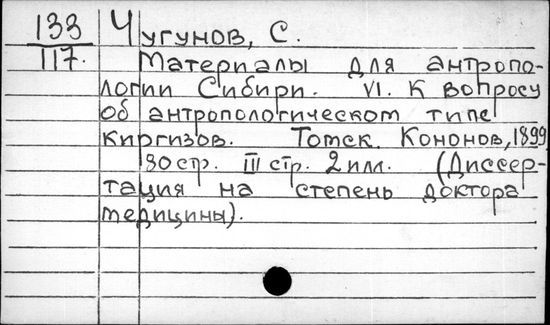 133 Чугунов, С.
117. Материалы для антропо-
логии Сибири. VI. К вопросу
об антропологическом типе
киргизов. Томск. Кононов, 1899
80 стр. III стр. 2 илл. (Диссер-
тация на степень доктора
медицины).